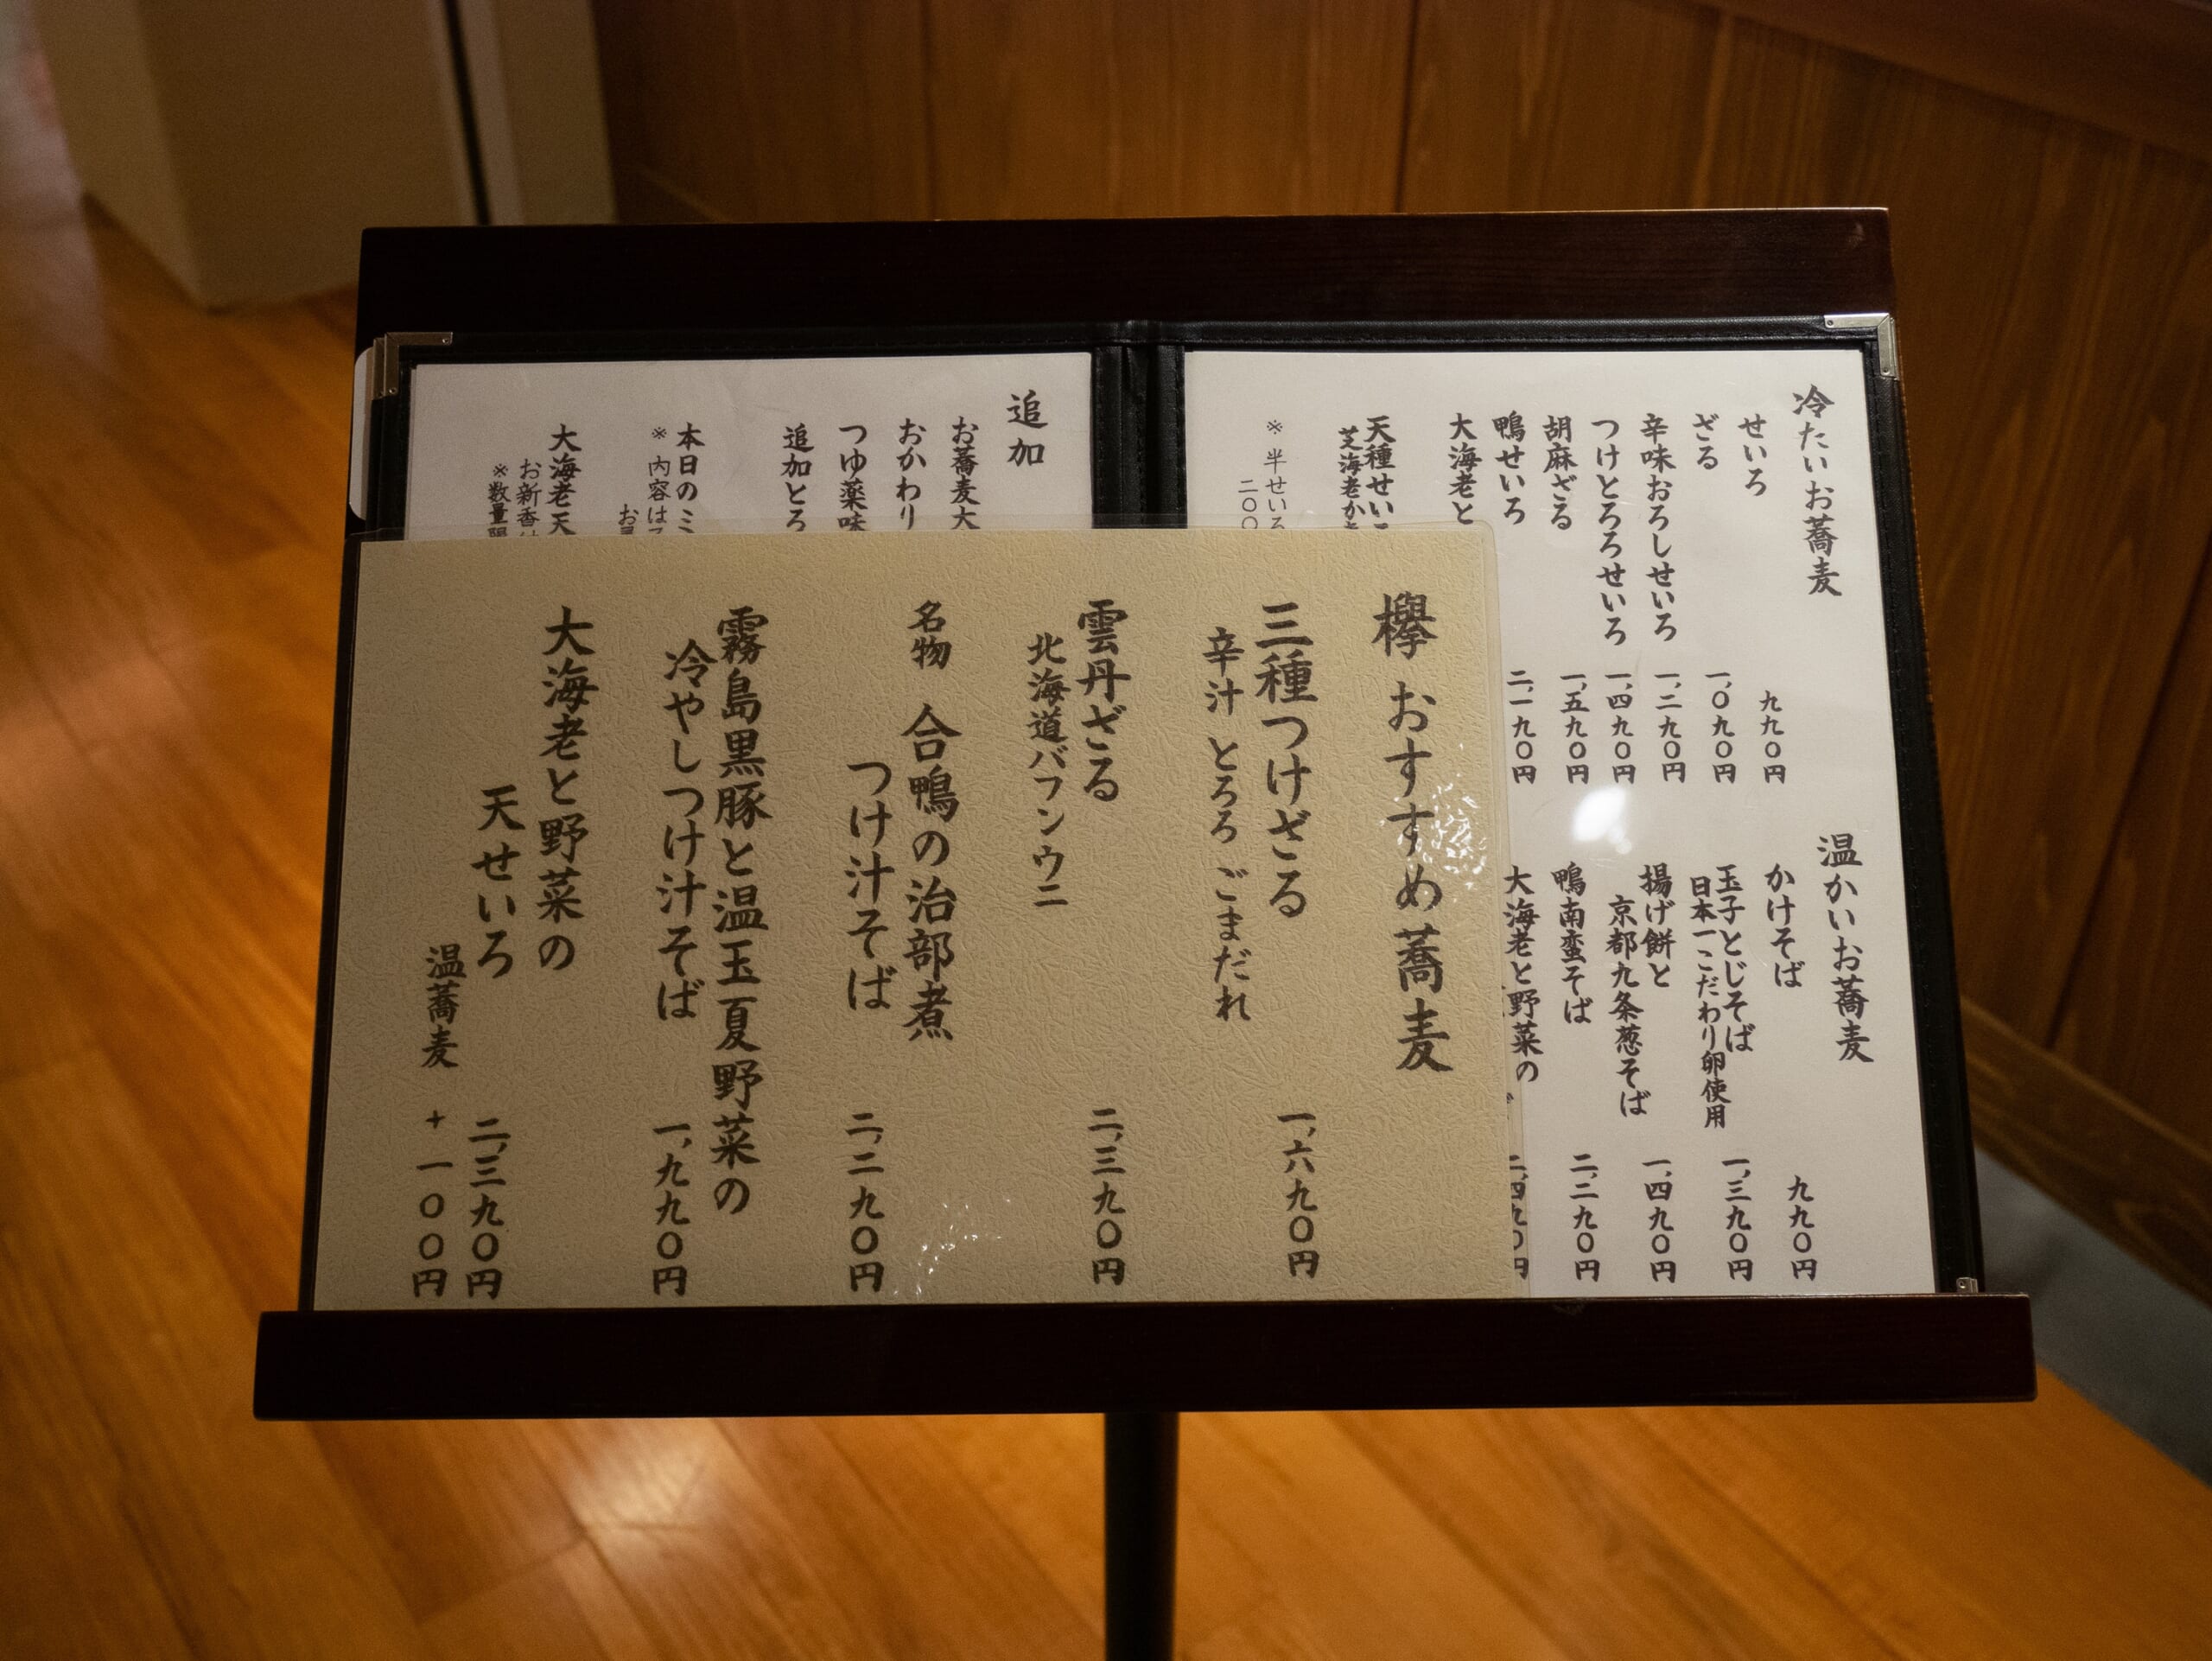 冷たいお蕎麦
せいろ 九九〇円
ざる 一、〇九〇円
辛味おろしせいろ 一、二九〇円
つけとろろせいろ 一、四九〇円
胡麻ざる 一、五九〇円
鴨せいろ 二、一九〇円
大海老と
天種せいろ
芝海老か
※ 半せいろ
二〇〇
温かいお蕎麦
かけそば 九九〇円
玉子とじそば 一、三九〇円
日本一こだわり卵使用
揚げ餅と
京都九条葱そば 一、四九〇円
鴨南蛮そば 二、二九〇円
大海老と野菜の
二、四九〇円
追加
お蕎麦大
おかわり
つゆ薬味
追加とろ
本日のミ
※ 内容は
お
大海老天
お新香
※数量限
欅 おすすめ蕎麦
三種つけざる 一、六九〇円
辛汁 とろろ ごまだれ
雲丹ざる 二、三九〇円
北海道バフンウニ
名物 合鴨の治部煮
つけ汁そば 二、二九〇円
霧島黒豚と温玉夏野菜の
冷やしつけ汁そば 一、九九〇円
大海老と野菜の
天せいろ 二、三九〇円
温蕎麦 +一〇〇円